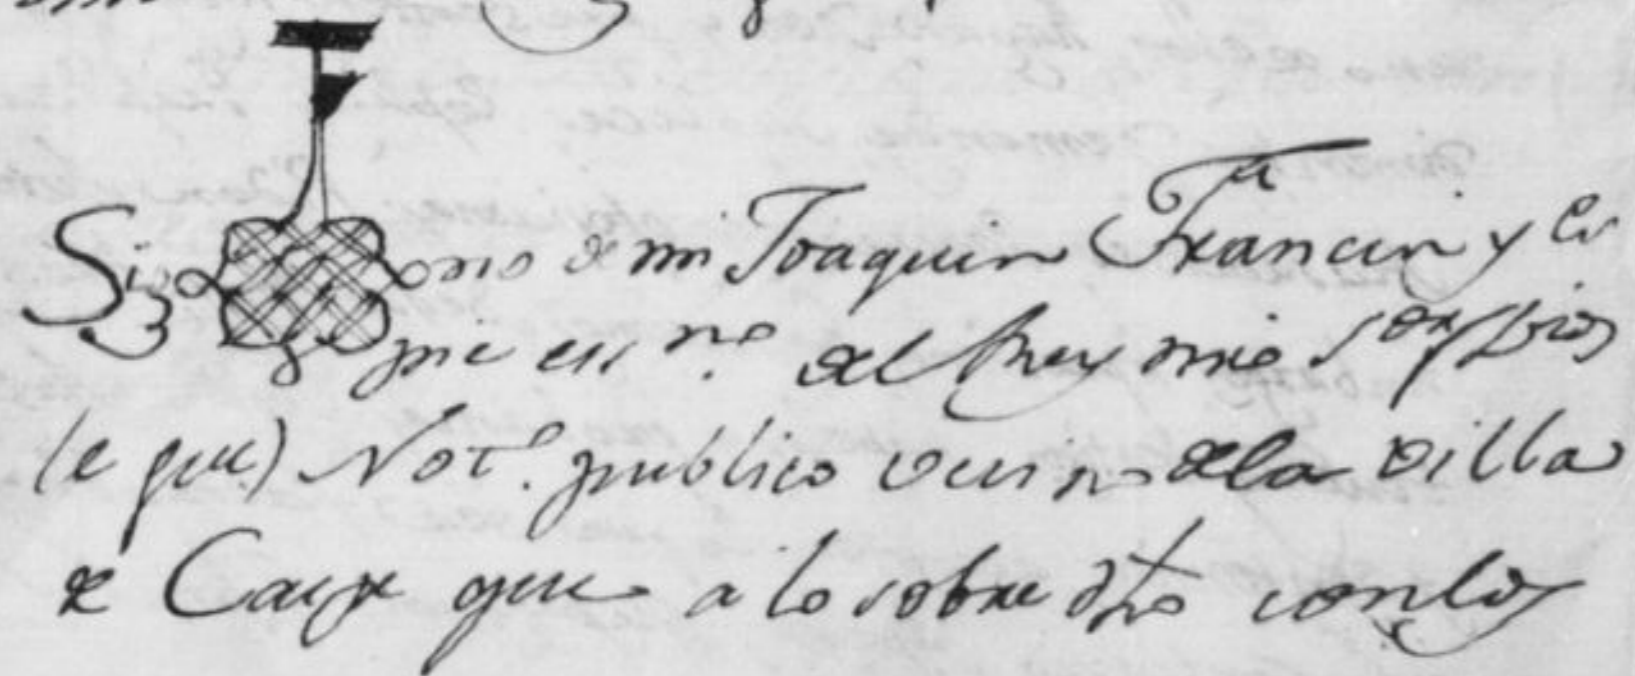 Sig no de mi Joaquin Francin y Es
pie ess.no del Rey mio S.or (Dios
le gue) Not.o publico vecino de la villa
de Caspe que a lo sobre d.ho con los